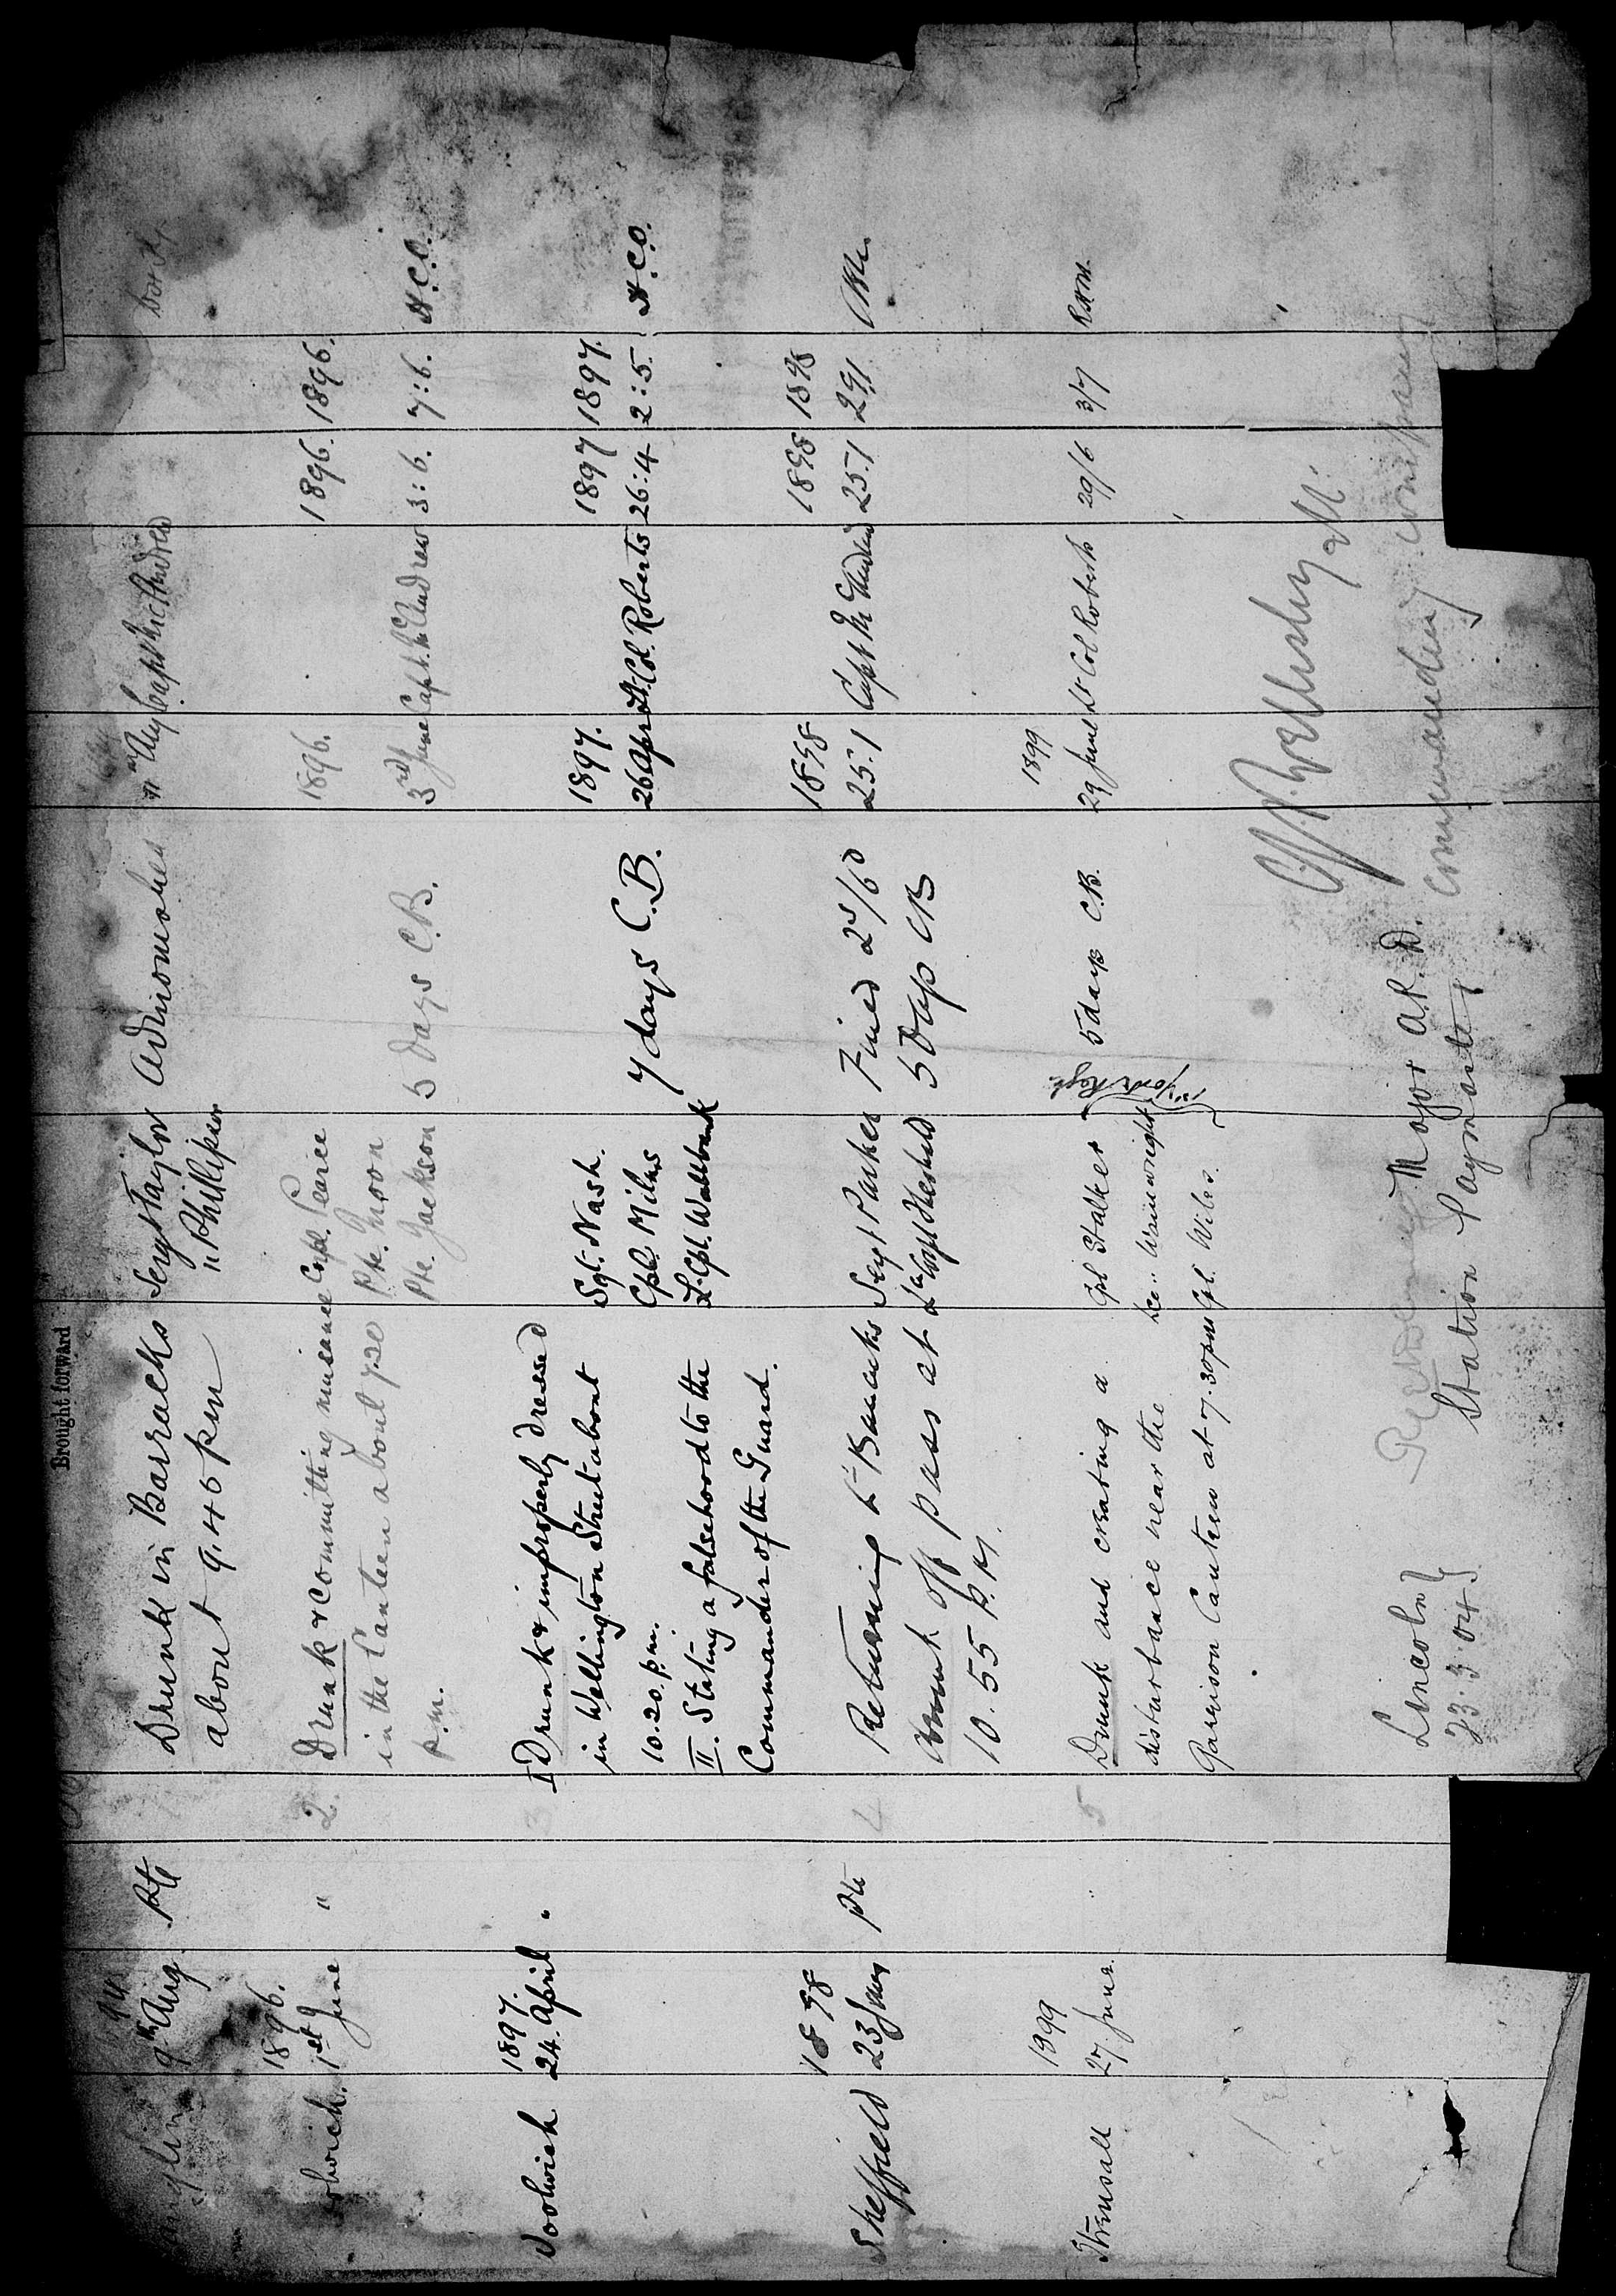 Brought forward
94
9th Aug Pte Drunk in Barracks Sergt Taylor Admonished 11th Aug Capt McAndrew
about 9.45 pm " Phillipson
1896. 1896. 1896. 1896.
1st June " 2. Drunk & committing nuisance Corpl. Pearce
in the Canteen about 7.30 Pte. Moon
p.m. Pte. Jackson 5 days C.B. 3rd June Capt. McAndrew 3:6. 7:6. H.C.O.
1897. 1897. 1897 1897.
Woolwich 24. April " 3 I Drunk & improperly dressed Sgt. Nash.
in Wellington Street about Cpl. Milns 7 days C.B. 26 April Lt. Col. Roberts 26:4 2:5. H.C.O.
10.20. p.m. L. Cpl. Wallbank
II. Stating a falsehood to the
Commander of the Guard.
1898 1898 1898 1898
Sheffield 23 Jany Pte 4 Returning to Barracks Sergt Parker Fined 2s/6d 25.1 Capt McAndrew 25.1 29.1
drunk off pass at 5 Days CB
10.55 P.M.
1899 1899
Strensall 27. June. 5 Drunk and creating a Cpl Stalker 5 days C.B. 29 June Lt Col Roberts 29/6 3/7
disturbance near the Lce " Wainwright York Regt.
Garrison Canteen at 7.30 pm Cpl. Wiles.
Lincoln Major A.P.D.
23.3.04 Station Paymaster commanding company